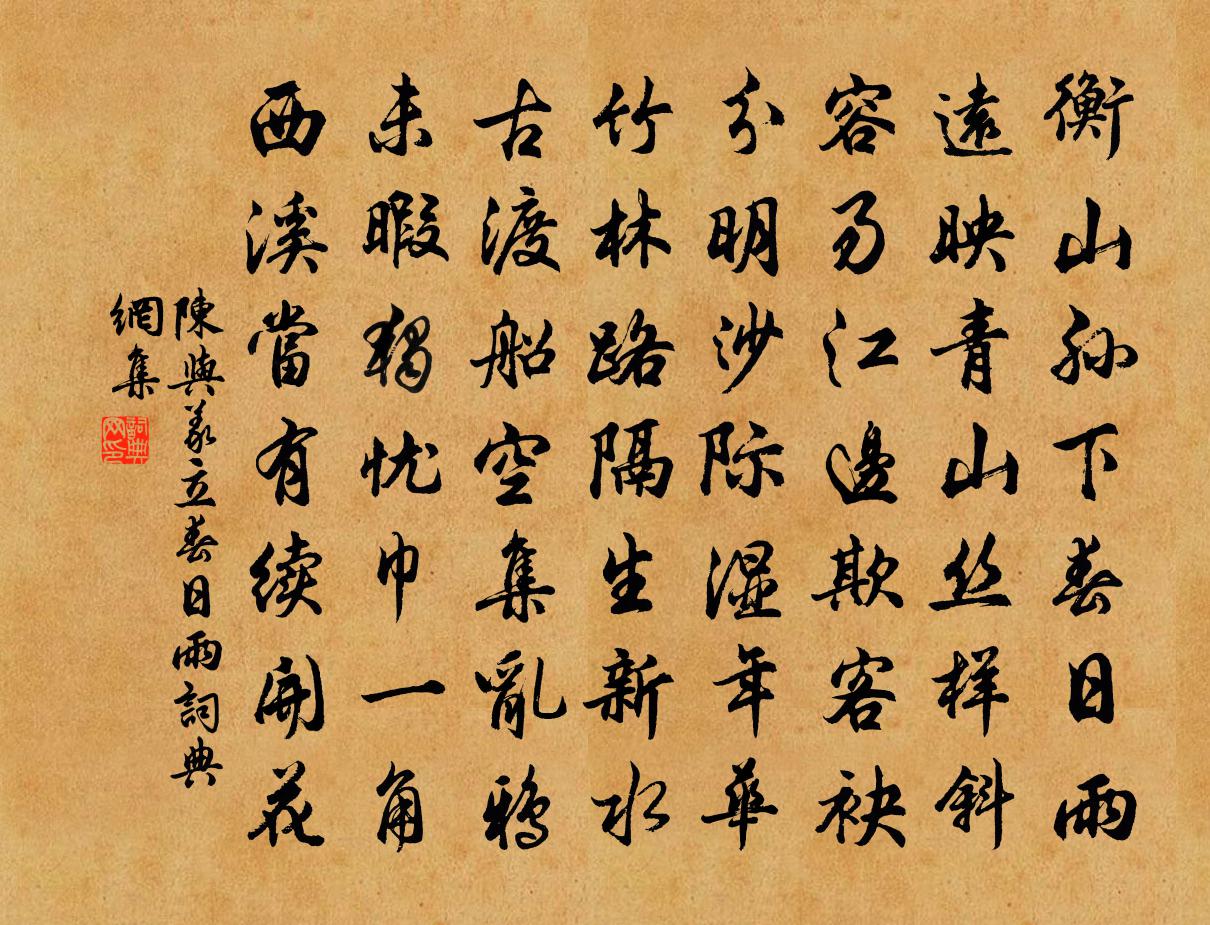 衡山縣下春日雨
遠映青山丝样斜
容易江邊欺客袂
分明沙际湿年華
竹林路隔生新水
古渡船空集亂鴉
未暇獨忧巾一角
西溪當有续開花
陳與義立春日雨詞典
網集
詞典
网印